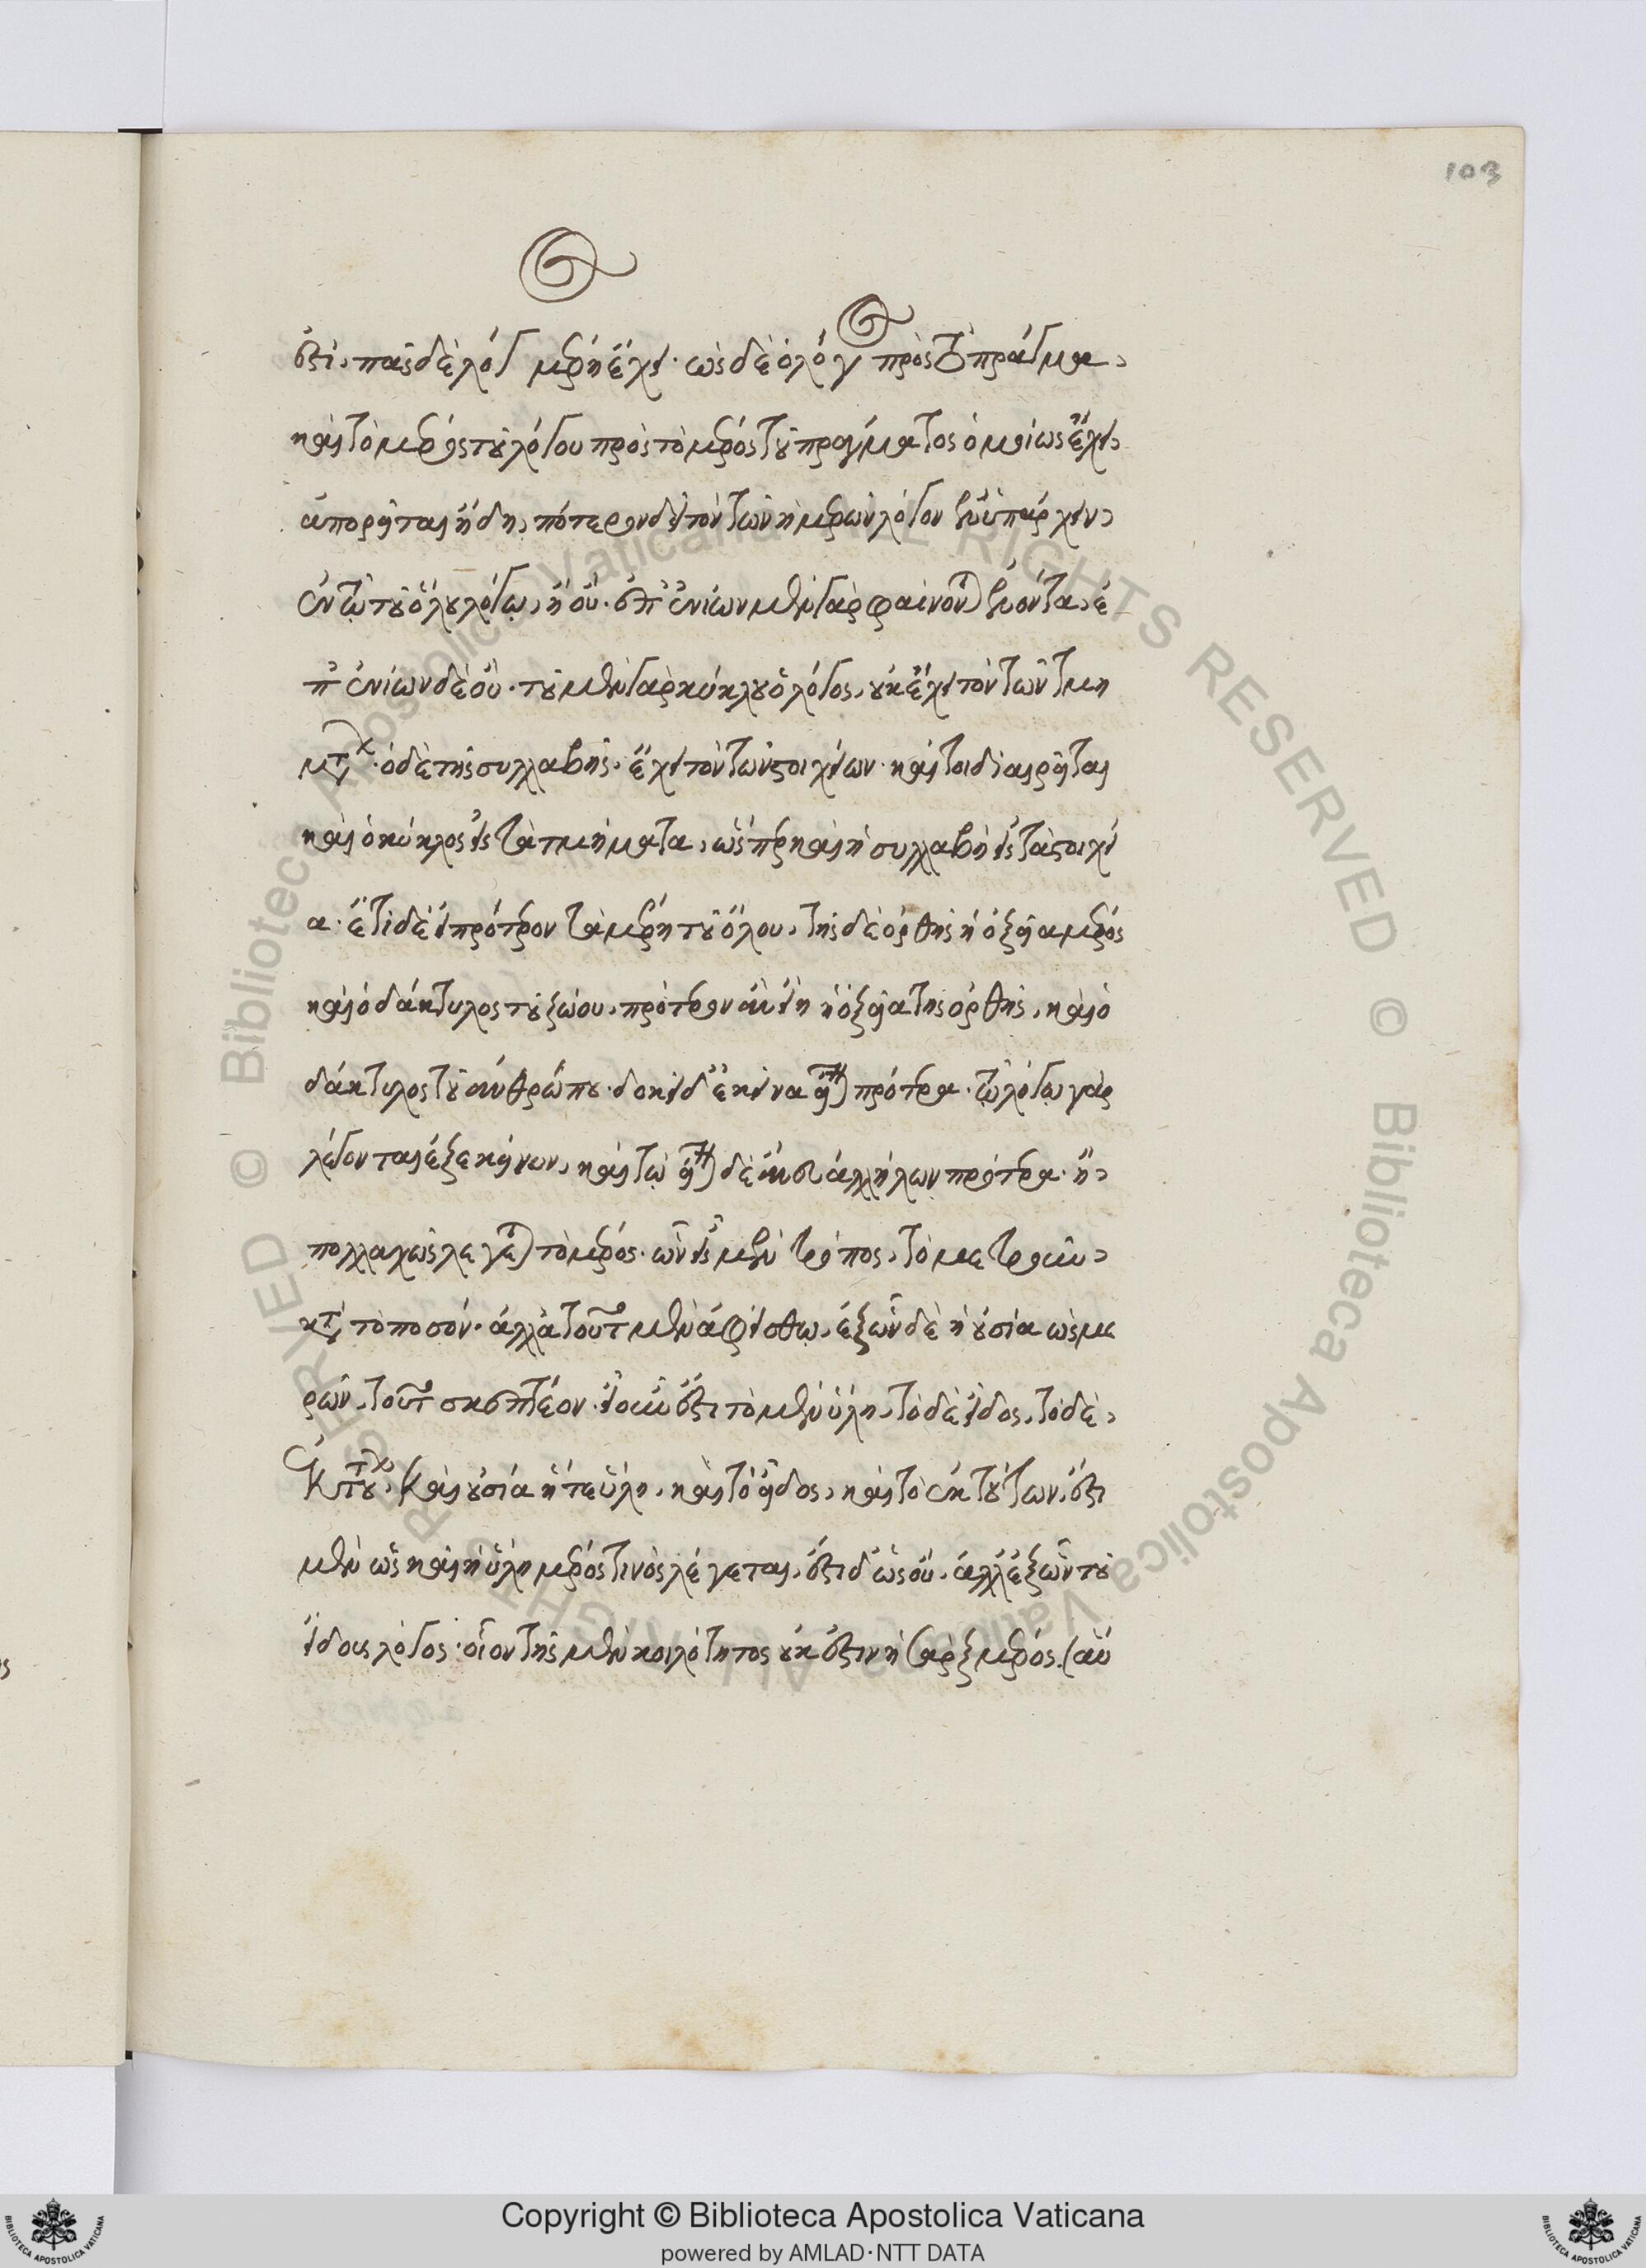 103
ἐστὶ, πᾶς δὲ λόγος μέρη ἔχει· ὡς δὲ ὁ λόγος πρὸς τὸ πρᾶγμα,
καὶ τὸ μέρος τοῦ λόγου πρὸς τὸ μέρος τοῦ πράγματος ὁμοίως ἔχει,
ἀπορεῖται ἤδη, πότερον δεῖ τὸν τῶν μερῶν λόγον ἐνυπάρχειν,
ἐν τῷ τοῦ ὅλου λόγῳ, ἢ οὔ. ἐπ' ἐνίων μὲν γὰρ φαίνονται ἐνόντα, ἐ
π' ἐνίων δὲ οὔ. τοῦ μὲν γὰρ κύκλου ὁ λόγος, οὐκ ἔχει τὸν τῶν τμη
μάτων· ὁ δὲ τῆς συλλαβῆς, ἔχει τὸν τῶν στοιχείων· καίτοι διαιρεῖται
καὶ ὁ κύκλος εἰς τὰ τμήματα, ὥσπερ καὶ ἡ συλλαβὴ εἰς τὰ στοιχεῖ
α. ἔτι δὲ εἰ πρότερον τὰ μέρη τοῦ ὅλου, τῆς δὲ ὀρθῆς ἡ ὀξεῖα μέρος
καὶ ὁ δάκτυλος τοῦ ζώου, πρότερον ἂν εἴη ἡ ὀξεῖα τῆς ὀρθῆς, καὶ ὁ
δάκτυλος τοῦ ἀνθρώπου. δοκεῖ δ' ἐκεῖνα εἶναι πρότερα. τῷ λόγῳ γὰρ
λέγονται ἐξ ἐκείνων, καὶ τῷ εἶναι δὲ ἄνευ ἀλλήλων πρότερα. ἢ,
πολλαχῶς λέγεται τὸ μέρος. ὧν εἷς μὲν τρόπος, τὸ μετροῦν,
κατὰ τὸ ποσόν. ἀλλὰ τοῦτο μὲν ἀφείσθω, ἐξ ὧν δὲ ἡ οὐσία ὡς με
ρῶν, τοῦτο σκεπτέον. εἰ οὖν ἐστι τὸ μὲν ὕλη, τὸ δὲ εἶδος, τὸ δὲ,
ἐκ τούτων, καὶ οὐσία ἥ τε ὕλη, καὶ τὸ εἶδος, καὶ τὸ ἐκ τούτων, ἔστι
μὲν ὡς καὶ ἡ ὕλη μέρος τινὸς λέγεται, ἔστι δ' ὡς οὔ, ἀλλ' ἐξ ὧν τοῦ
εἴδους λόγος. οἷον τῆς μὲν κοιλότητος οὐκ ἔστιν ἡ σὰρξ μέρος. (αὕ
© Biblioteca Apostolica Vaticana ALL RIGHTS RESERVED © Biblioteca Apostolica Vaticana ALL RIGHTS RESERVED
Copyright © Biblioteca Apostolica Vaticana
powered by AMLAD·NTT DATA
BIBLIOTECA APOSTOLICA VATICANA
BIBLIOTECA APOSTOLICA VATICANA